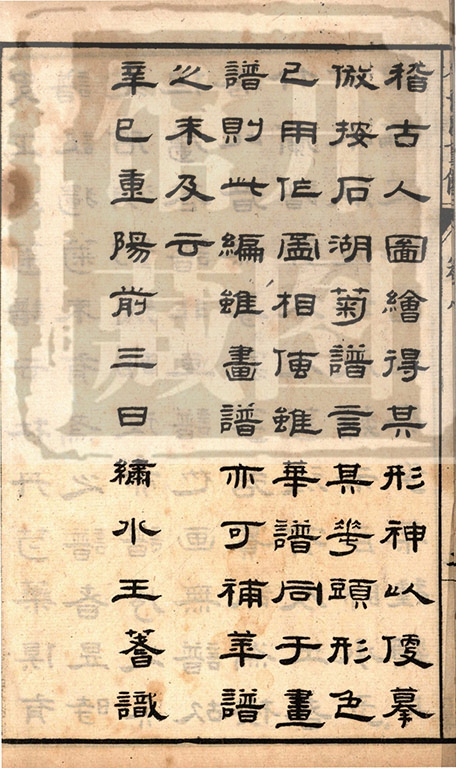 稽古人圖繪得其形神以便摹
倣按石湖菊譜言其花頭形色
已用作相雖華譜同于畫
譜則此編雖畫譜亦可補華譜
之未及云
辛巳重陽前三日繡水王蓍識